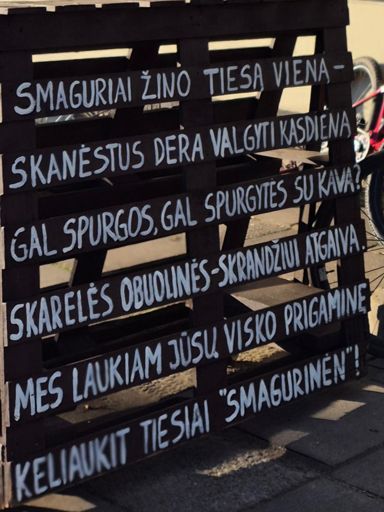 SMAGURIAI ŽINO TIESĄ VIENĄ -
SKANĖSTUS DERA VALGYTI KASDIENĄ.
GAL SPURGOS, GAL SPURGYTĖS SU KAVA?
SKARELĖS OBUOLINĖS-SKRANDŽIUI ATGAIVA.
MES LAUKIAM JŪSŲ VISKO PRIGAMINĘ
KELIAUKIT TIESIAI "SMAGURINĖN"!